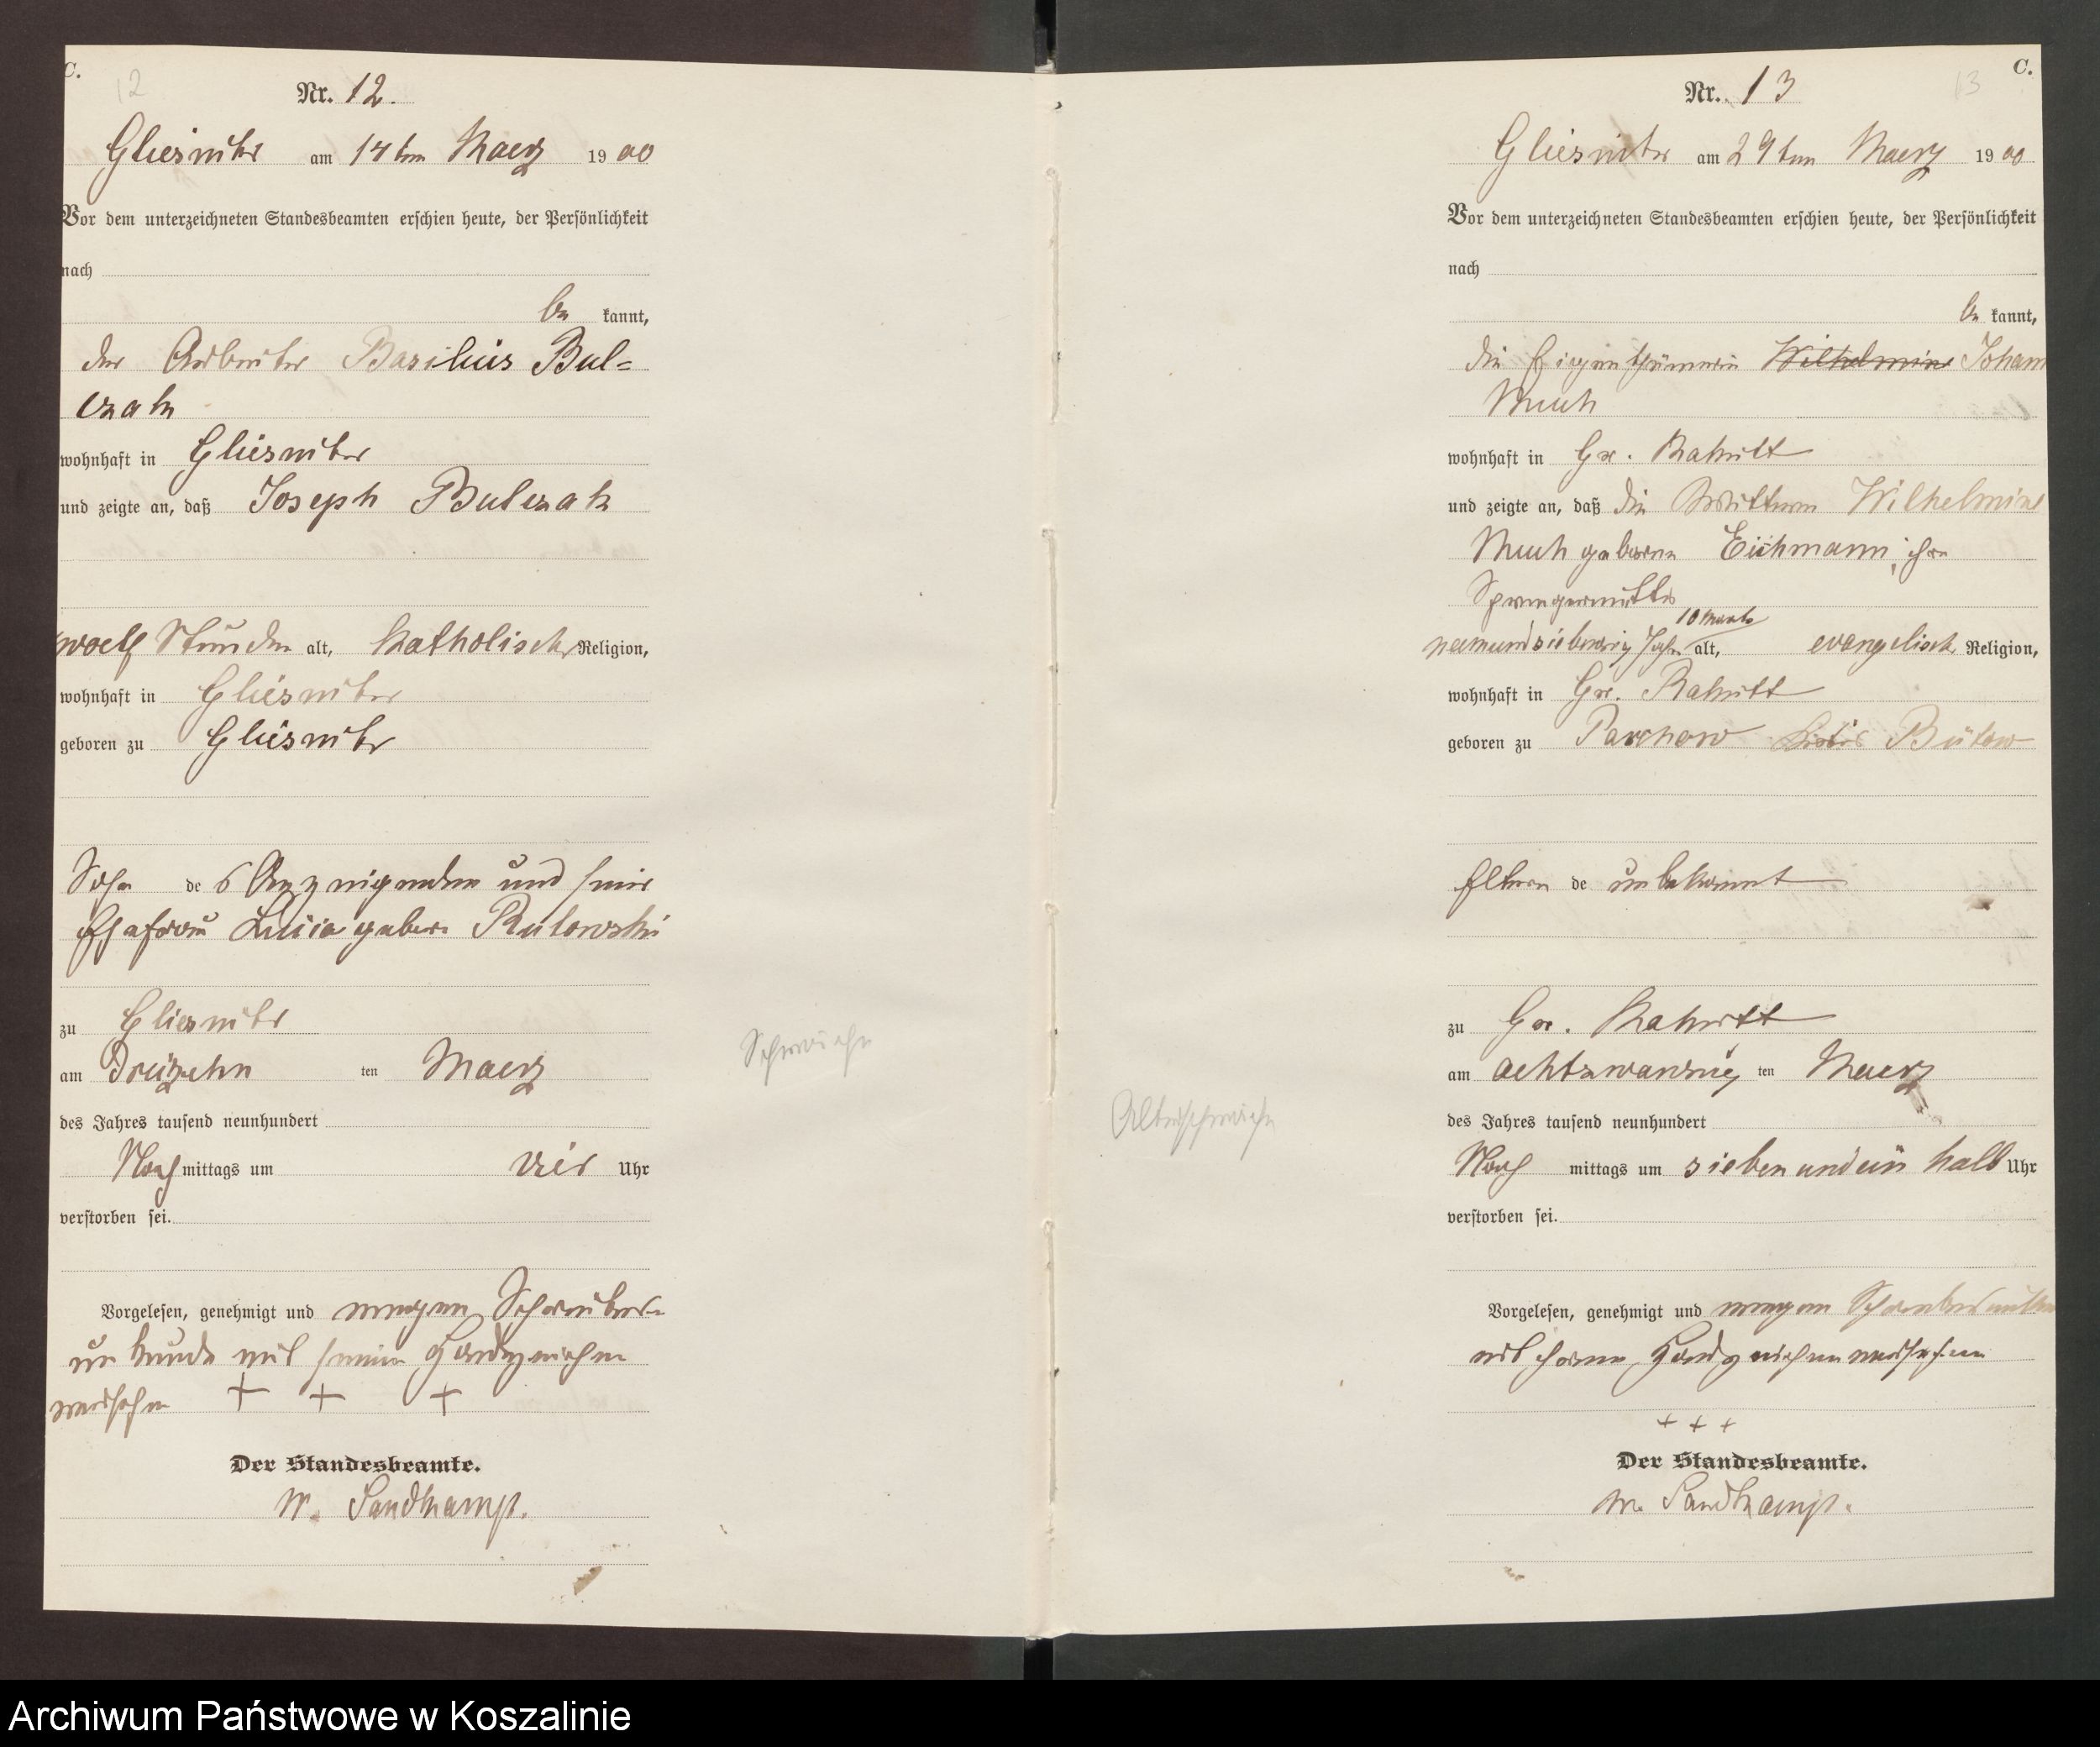 C.
12
Nr. 12.
Gliesnitz am 14ten Maerz 1900
Vor dem unterzeichneten Standesbeamten erschien heute, der Persönlichkeit
nach
be kannt,
der Arbeiter Basilius Bul=
czak
wohnhaft in Gliesnitz
und zeigte an, daß Joseph Bulczak
zwoelf Stunden alt, katholischer Religion,
wohnhaft in Gliesnitz
geboren zu Gliesnitz
Sohn des Anzeigenden und seiner
Ehefrau Lucia geborne
zu Gliesnitz
am Dreizehn ten Maerz
des Jahres tausend neunhundert
Nach mittags um vier Uhr
verstorben sei.
Vorgelesen, genehmigt und wegen Schreibens=
unkunde mit seinem Handzeichen
versehen + + +
Der Standesbeamte.
W. Sandkamp.
Schwäche
C.
13
Nr. 13
Gliesnitz am 29ten Maerz 1900
Vor dem unterzeichneten Standesbeamten erschien heute, der Persönlichkeit
nach
be kannt,
die Eigenthümerin Wilhelmine Johann
Much
wohnhaft in Gr. Rakitt
und zeigte an, daß die Wittwe Wilhelmine
Much geborne Eichmann, ihre
Schwiegermutter
neunundsiebenzig Jahre 10 Monate alt, evangelisch Religion,
wohnhaft in Gr. Rakitt
geboren zu Parchow Kreis Bütow
Eltern de unbekannt
zu Gr. Rakitt
am achtzwanzig ten Maerz
des Jahres tausend neunhundert
Nach mittags um sieben und ein halb Uhr
verstorben sei.
Vorgelesen, genehmigt und wegen
mit ihrem Handzeichen versehen
+ + +
Der Standesbeamte.
W. Sandkamp.
Altersschwäche
Archiwum Państwowe w Koszalinie